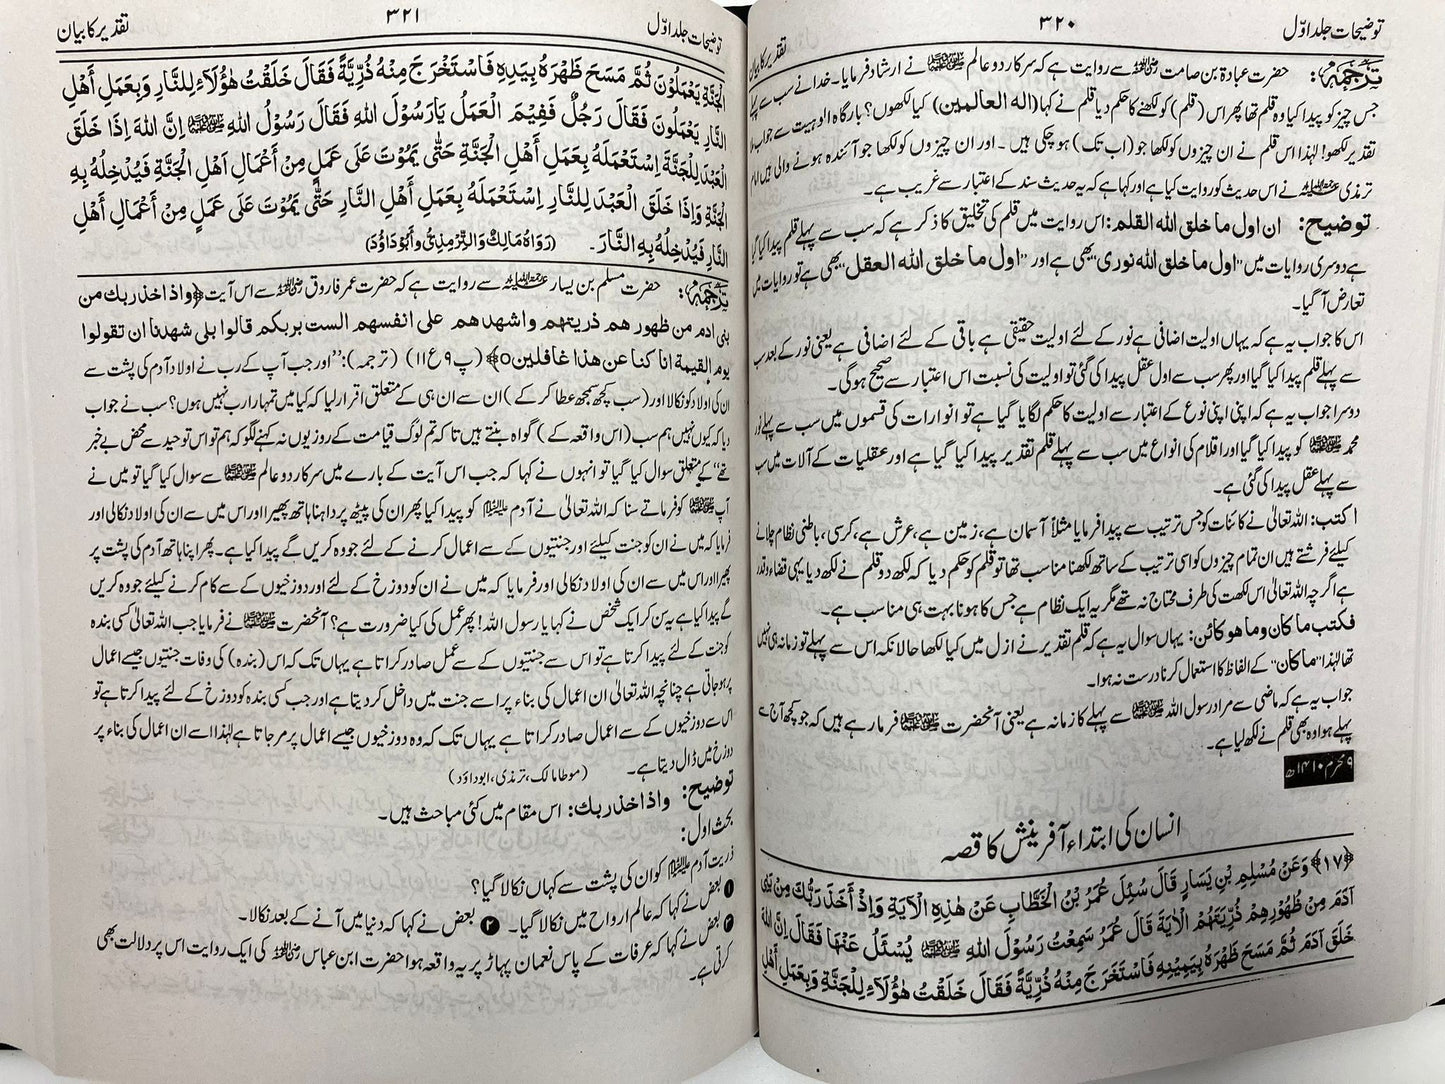 توضیحات جلد اوّل ۳۲۰ تقدیر کا بیان
ترجمہ: حضرت عبادۃ بن صامت رضی اللہ عنہ سے روایت ہے کہ سرکار دو عالم ﷺ نے ارشاد فرمایا۔ خدا نے سب سے پہلے
جس چیز کو پیدا کیا وہ قلم تھا پھر اس (قلم) کو لکھنے کا حکم دیا قلم نے کہا (الہ العالمین) کیا لکھوں؟ بارگاہ الوہیت سے جواب ملا
تقدیر لکھو! لہٰذا اس قلم نے ان چیزوں کو لکھا جو (اب تک) ہو چکی ہیں۔ اور ان چیزوں کو لکھا جو آئندہ ہونے والی ہیں امام
ترمذی نے اس حدیث کو روایت کیا ہے اور کہا ہے کہ یہ حدیث سند کے اعتبار سے غریب ہے۔
توضیح: ان اول ما خلق اللہ القلم: اس روایت میں قلم کی تخلیق کا ذکر ہے کہ سب سے پہلے قلم پیدا کیا گیا
ہے دوسری روایات میں "اول ما خلق اللہ نوری" بھی ہے اور "اول ما خلق اللہ العقل" بھی ہے تو روایات میں
تعارض آ گیا۔
اس کا جواب یہ ہے کہ یہاں اولیت اضافی ہے نور کے لئے اولیت حقیقی ہے باقی کے لئے اضافی ہے یعنی نور کے بعد سب
سے پہلے قلم پیدا کیا گیا اور پھر سب سے اول عقل پیدا کی گئی تو اولیت کی نسبت اس اعتبار سے صحیح ہو گی۔
دوسرا جواب یہ ہے کہ اپنی اپنی نوع کے اعتبار سے اولیت کا حکم لگایا گیا ہے تو انوارات کی قسموں میں سب سے پہلے نور
محمد ﷺ کو پیدا کیا گیا اور اقلام کی انواع میں سب سے پہلے قلم تقدیر پیدا کیا گیا ہے اور عقلیات کے آلات میں سب
سے پہلے عقل پیدا کی گئی ہے۔
اکتب: اللہ تعالیٰ نے کائنات کو جس ترتیب سے پیدا فرمایا مثلاً آسمان ہے، زمین ہے، عرش ہے، کرسی، باطنی نظام چلانے
کیلئے فرشتے ہیں ان تمام چیزوں کو اسی ترتیب کے ساتھ لکھنا مناسب تھا تو قلم کو حکم دیا کہ لکھ دو قلم نے لکھ دیا یہی قضاء و قدر
ہے اگرچہ اللہ تعالیٰ اس لکھت کی طرف محتاج نہ تھے مگر یہ ایک نظام ہے جس کا ہونا بہت ہی مناسب ہے۔
فکتب ما کان وما ھو کائن: یہاں سوال یہ ہے کہ قلم تقدیر نے ازل میں کیا لکھا حالانکہ اس سے پہلے تو زمانہ ہی نہیں
تھا لہٰذا "ما کان" کے الفاظ کا استعمال کرنا درست نہ ہوا۔
جواب یہ ہے کہ ماضی سے مراد رسول اللہ ﷺ سے پہلے کا زمانہ ہے یعنی آنحضرت ﷺ فرما رہے ہیں کہ جو کچھ آج سے
پہلے ہوا وہ بھی قلم نے لکھ لیا ہے۔
۹ محرم ۱۴۱۰ھ
انسان کی ابتداء آفرینش کا قصہ
﴿۱۷﴾ وَعَنْ مُسْلِمِ بْنِ یَسَارٍ قَالَ سُئِلَ عُمَرُ بْنُ الْخَطَّابِ عَنْ هٰذِهِ الْآيَةِ وَإِذْ أَخَذَ رَبُّكَ مِنْ بَنِی
آدَمَ مِنْ ظُهُورِهِمْ ذُرِّيَّتَهُمْ الْآيَةَ قَالَ عُمَرُ سَمِعْتُ رَسُوْلَ اللّٰهِ ﷺ يُسْئَلُ عَنْهَا فَقَالَ إِنَّ اللّٰهَ
خَلَقَ آدَمَ ثُمَّ مَسَحَ ظَهْرَهُ بِيَمِيْنِهِ فَاسْتَخْرَجَ مِنْهُ ذُرِّيَّةً فَقَالَ خَلَقْتُ هٰؤُلَاءِ لِلْجَنَّةِ وَبِعَمَلِ أَهْلِ
توضیحات جلد اوّل ۳۲۱ تقدیر کا بیان
الْجَنَّةِ يَعْمَلُوْنَ ثُمَّ مَسَحَ ظَهْرَهُ بِيَدِهِ فَاسْتَخْرَجَ مِنْهُ ذُرِّيَّةً فَقَالَ خَلَقْتُ هٰؤُلَاءِ لِلنَّارِ وَبِعَمَلِ أَهْلِ
النَّارِ يَعْمَلُوْنَ فَقَالَ رَجُلٌ فَفِيْمَ الْعَمَلُ يَارَسُوْلَ اللّٰهِ فَقَالَ رَسُوْلُ اللّٰهِ ﷺ إِنَّ اللّٰهَ إِذَا خَلَقَ
الْعَبْدَ لِلْجَنَّةِ اِسْتَعْمَلَهُ بِعَمَلِ أَهْلِ الْجَنَّةِ حَتّٰى يَمُوْتَ عَلٰى عَمَلٍ مِنْ أَعْمَالِ اَهْلِ الْجَنَّةِ فَيُدْخِلُهُ بِهِ
الْجَنَّةَ وَإِذَا خَلَقَ الْعَبْدَ لِلنَّارِ اِسْتَعْمَلَهُ بِعَمَلِ أَهْلِ النَّارِ حَتّٰى يَمُوْتَ عَلٰى عَمَلٍ مِنْ أَعْمَالِ أَهْلِ
النَّارِ فَيُدْخِلُهُ بِهِ النَّارَ۔ (رَوَاهُ مَالِكٌ وَالتِّرْمِذِيُّ وَأَبُوْدَاوُدَ)
ترجمہ: حضرت مسلم بن یسار سے روایت ہے کہ حضرت عمر فاروق رضی اللہ عنہ سے اس آیت ﴿واذ اخذ ربك من
بنی ادم من ظهور هم ذریتهم واشهد هم علی انفسهم الست بربکم قالوا بلی شهدنا ان تقولوا
یوم القیمة انا کنا عن هذا غافلین○﴾ (پ۹ ع۱۱) (ترجمہ): "اور جب آپ کے رب نے اولاد آدم کی پشت سے
ان کی اولاد کو نکالا اور (سب کچھ سمجھ عطا کر کے) ان سے ان ہی کے متعلق اقرار لیا کہ کیا میں تمہارا رب نہیں ہوں؟ سب نے جواب
دیا کہ کیوں نہیں ہم سب (اس واقعہ کے) گواہ بنتے ہیں تا کہ تم لوگ قیامت کے روز یوں نہ کہنے لگو کہ ہم تو اس توحید سے محض بے خبر
تھے" کے متعلق سوال کیا گیا تو انہوں نے کہا کہ جب اس آیت کے بارے میں سرکار دو عالم ﷺ سے سوال کیا گیا تو میں نے
آپ ﷺ کو فرماتے سنا کہ اللہ تعالیٰ نے آدم علیہ السلام کو پیدا کیا پھر ان کی پیٹھ پر داہنا ہاتھ پھیرا اور اس میں سے ان کی اولاد نکالی اور
فرمایا کہ میں نے ان کو جنت کیلئے اور جنتیوں کے سے اعمال کرنے کے لئے جو وہ کریں گے پیدا کیا ہے۔ پھر اپنا ہاتھ آدم کی پشت پر
پھیرا اور اس میں سے ان کی اولاد نکالی اور فرمایا کہ میں نے ان کو دوزخ کے لئے اور دوزخیوں کے سے کام کرنے کیلئے جو وہ کریں
گے پیدا کیا ہے یہ سن کر ایک شخص نے کہا یا رسول اللہ! پھر عمل کی کیا ضرورت ہے؟ آنحضرت ﷺ نے فرمایا جب اللہ تعالیٰ کسی بندہ
کو جنت کے لئے پیدا کرتا ہے تو اس سے جنتیوں کے سے عمل صادر کراتا ہے یہاں تک کہ اس (بندہ) کی وفات جنتیوں جیسے اعمال
پر ہو جاتی ہے چنانچہ اللہ تعالیٰ ان اعمال کی بناء پر اسے جنت میں داخل کر دیتا ہے اور جب کسی بندہ کو دوزخ کے لئے پیدا کرتا ہے تو
اس سے دوزخیوں کے سے اعمال صادر کراتا ہے یہاں تک کہ وہ دوزخیوں جیسے اعمال پر مر جاتا ہے لہٰذا اسے ان اعمال کی بناء پر
دوزخ میں ڈال دیتا ہے۔ (موطا مالک، ترمذی، ابوداؤد)
توضیح: واذ اخذ ربك: اس مقام میں کئی مباحث ہیں۔
بحث اول:
ذریت آدم علیہ السلام کو ان کی پشت سے کہاں نکالا گیا؟
❶ بعض نے کہا کہ عالم ارواح میں نکالا گیا۔ ❷ بعض نے کہا کہ دنیا میں آنے کے بعد نکالا۔
❸ بعض نے کہا کہ عرفات کے پاس نعمان پہاڑ پر یہ واقعہ ہوا حضرت ابن عباس رضی اللہ عنہ کی ایک روایت اس پر دلالت بھی
کرتی ہے۔